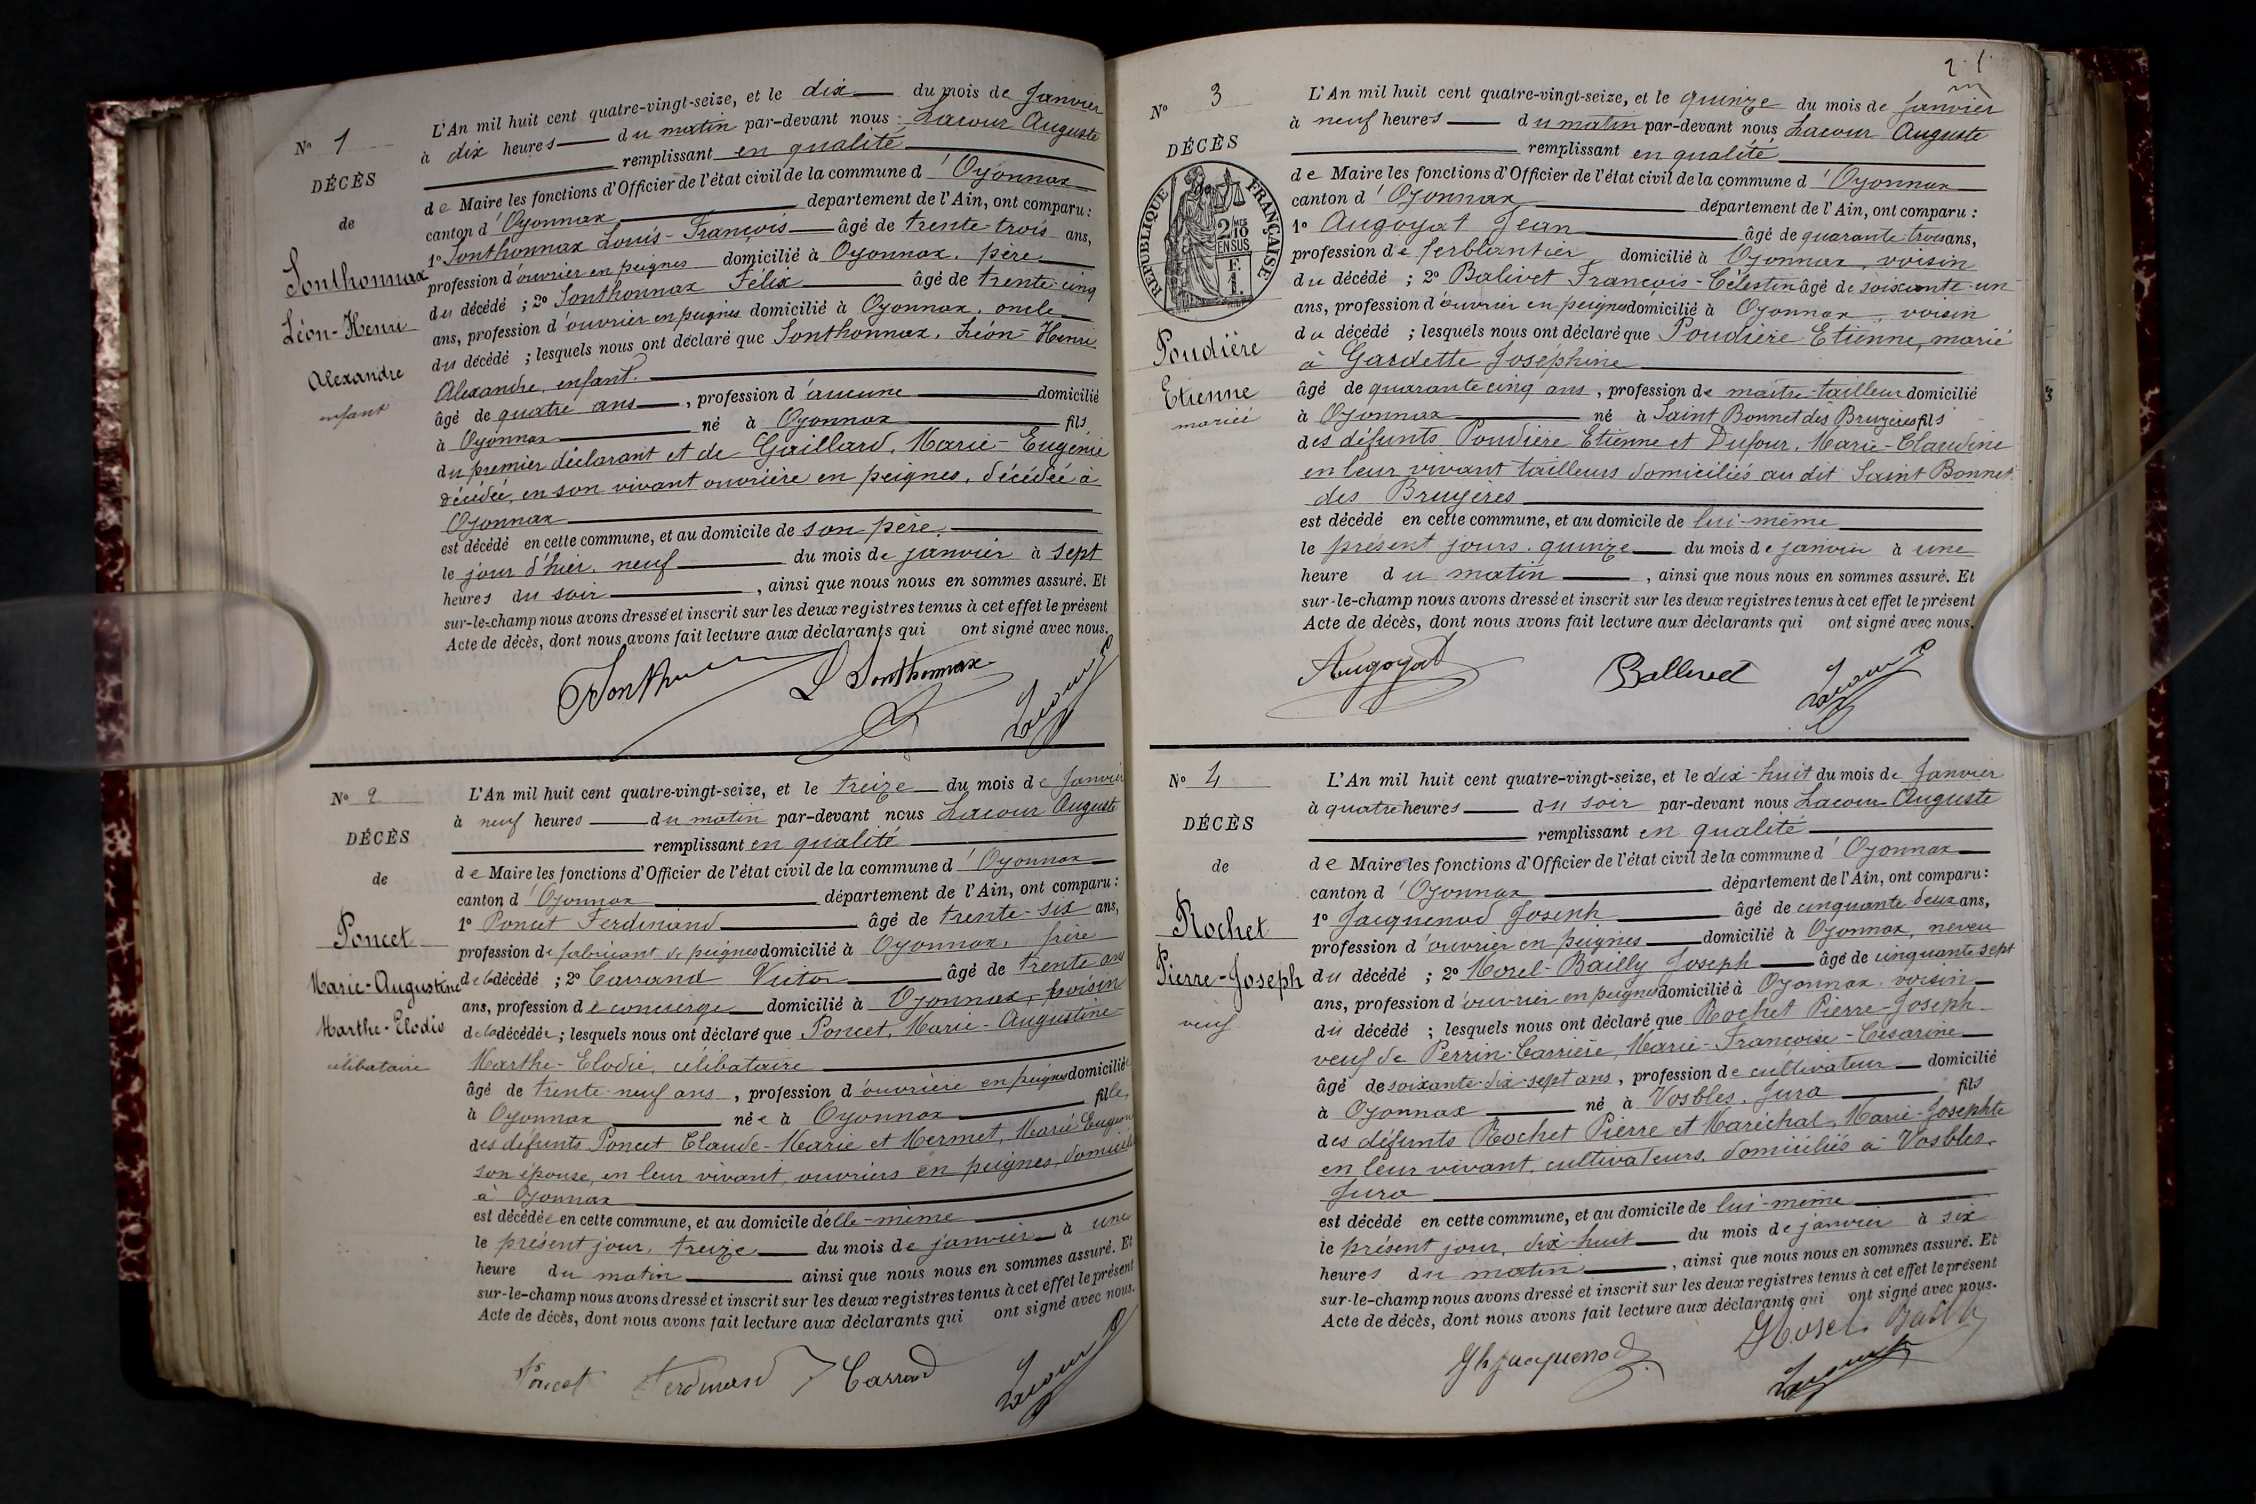 N° 1
DÉCÈS
de
Sonthonnax
Léon-Henri
Alexandre
enfant
L'An mil huit cent quatre-vingt-seize, et le dix du mois de Janvier
à dix heures du matin par-devant nous Lacour Auguste
remplissant en qualité
de Maire les fonctions d'Officier de l'état civil de la commune d'Oyonnax
canton d'Oyonnax département de l'Ain, ont comparu :
1° Sonthonnax Louis-François âgé de trente trois ans,
profession d'ouvrier en peignes domicilié à Oyonnax, père
du décédé ; 2° Sonthonnax Félix âgé de trente-cinq
ans, profession d'ouvrier en peignes domicilié à Oyonnax, oncle
du décédé ; lesquels nous ont déclaré que Sonthonnax, Léon-Henri
Alexandre, enfant.
âgé de quatre ans, profession d'aucune domicilié
à Oyonnax né à Oyonnax fils
du premier déclarant et de Gaillard, Marie-Eugénie
décédée, en son vivant ouvrière en peignes, décédée à
Oyonnax
est décédé en cette commune, et au domicile de son père,
le jour d'hier, neuf du mois de janvier à sept
heures du soir, ainsi que nous nous en sommes assuré. Et
sur-le-champ nous avons dressé et inscrit sur les deux registres tenus à cet effet le présent
Acte de décès, dont nous avons fait lecture aux déclarants qui ont signé avec nous.
L Sonthonnax
Lacour
N° 2
DÉCÈS
de
Poncet
Marie-Augustine
Marthe-Elodie
célibataire
L'An mil huit cent quatre-vingt-seize, et le treize du mois de Janvier
à neuf heures du matin par-devant nous Lacour Auguste
remplissant en qualité
de Maire les fonctions d'Officier de l'état civil de la commune d'Oyonnax
canton d'Oyonnax département de l'Ain, ont comparu :
1° Poncet Ferdinand âgé de trente-six ans,
profession de fabricant de peignes domicilié à Oyonnax, frère
de la décédé ; 2° Carrand Victor âgé de trente ans
ans, profession de concierge domicilié à Oyonnax, voisin
de la décédée ; lesquels nous ont déclaré que Poncet, Marie-Augustine
Marthe-Elodie, célibataire
âgé de trente-neuf ans, profession d'ouvrière en peignes domicilié
à Oyonnax née à Oyonnax fille,
des défunts Poncet Claude-Marie et Mermet, Marie Eugénie
son épouse, en leur vivant, ouvriers en peignes, domiciliés
à Oyonnax
est décédée en cette commune, et au domicile d'elle-même
le présent jour, treize du mois de janvier à une
heure du matin ainsi que nous nous en sommes assuré. Et
sur-le-champ nous avons dressé et inscrit sur les deux registres tenus à cet effet le présent
Acte de décès, dont nous avons fait lecture aux déclarants qui ont signé avec nous.
Poncet Ferdinand Carrand
Lacour
2
N° 3
DÉCÈS
RÉPUBLIQUE FRANÇAISE
2/10
EN SUS
Poudière
Etienne
mariéé
L'An mil huit cent quatre-vingt-seize, et le quinze du mois de Janvier
à neuf heures du matin par-devant nous Lacour Auguste
remplissant en qualité
de Maire les fonctions d'Officier de l'état civil de la commune d'Oyonnax
canton d'Oyonnax département de l'Ain, ont comparu :
1° Augoyat Jean âgé de quarante trois ans,
profession de ferblantier, domicilié à Oyonnax, voisin
du décédé ; 2° Balivet François-Célestin âgé de soixante-un
ans, profession d'ouvrier en peignes domicilié à Oyonnax, voisin
du décédé ; lesquels nous ont déclaré que Poudière Etienne, marié
à Gardette Joséphine
âgé de quarante cinq ans, profession de maître-tailleur domicilié
à Oyonnax né à Saint Bonnet des Bruyères fils
des défunts Poudière Etienne et Dufour, Marie-Claudine
en leur vivant tailleurs domiciliés au dit Saint Bonnet
des Bruyères
est décédé en cette commune, et au domicile de lui-même
le présent jours, quinze du mois de janvier à une
heure du matin, ainsi que nous nous en sommes assuré. Et
sur-le-champ nous avons dressé et inscrit sur les deux registres tenus à cet effet le présent
Acte de décès, dont nous avons fait lecture aux déclarants qui ont signé avec nous.
Augoyat Ballivet Lacour
N° 4
DÉCÈS
de
Rochet
Pierre-Joseph
veuf
L'An mil huit cent quatre-vingt-seize, et le dix-huit du mois de Janvier
à quatre heures du soir par-devant nous Lacour Auguste
remplissant en qualité
de Maire les fonctions d'Officier de l'état civil de la commune d'Oyonnax
canton d'Oyonnax département de l'Ain, ont comparu :
1° Jacquenod Joseph âgé de cinquante deux ans,
profession d'ouvrier en peignes domicilié à Oyonnax, neveu
du décédé ; 2° Morel-Bailly Joseph âgé de cinquante sept
ans, profession d'ouvrier en peignes domicilié à Oyonnax, voisin
du décédé ; lesquels nous ont déclaré que Rochet Pierre-Joseph
veuf de Perrin-Carrière, Marie-Françoise-Césarine
âgé de soixante-dix-sept ans, profession de cultivateur domicilié
à Oyonnax né à Vosbles, Jura fils
des défunts Rochet Pierre et Maréchal, Marie-Josephte
en leur vivant, cultivateurs, domiciliés à Vosbles,
Jura
est décédé en cette commune, et au domicile de lui-même
le présent jour, dix-huit du mois de janvier à six
heures du matin, ainsi que nous nous en sommes assuré. Et
sur-le-champ nous avons dressé et inscrit sur les deux registres tenus à cet effet le présent
Acte de décès, dont nous avons fait lecture aux déclarants qui ont signé avec nous.
Jh Jacquenod Morel Bailly
Lacour